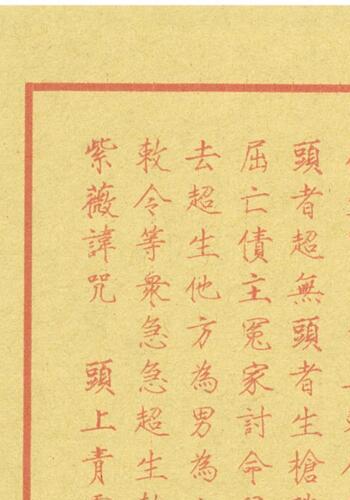 頭者超無頭者生槍
屈亡債主冤家討命
去超生他方為男為
敕令等衆急急超生
紫薇諱咒　頭上青